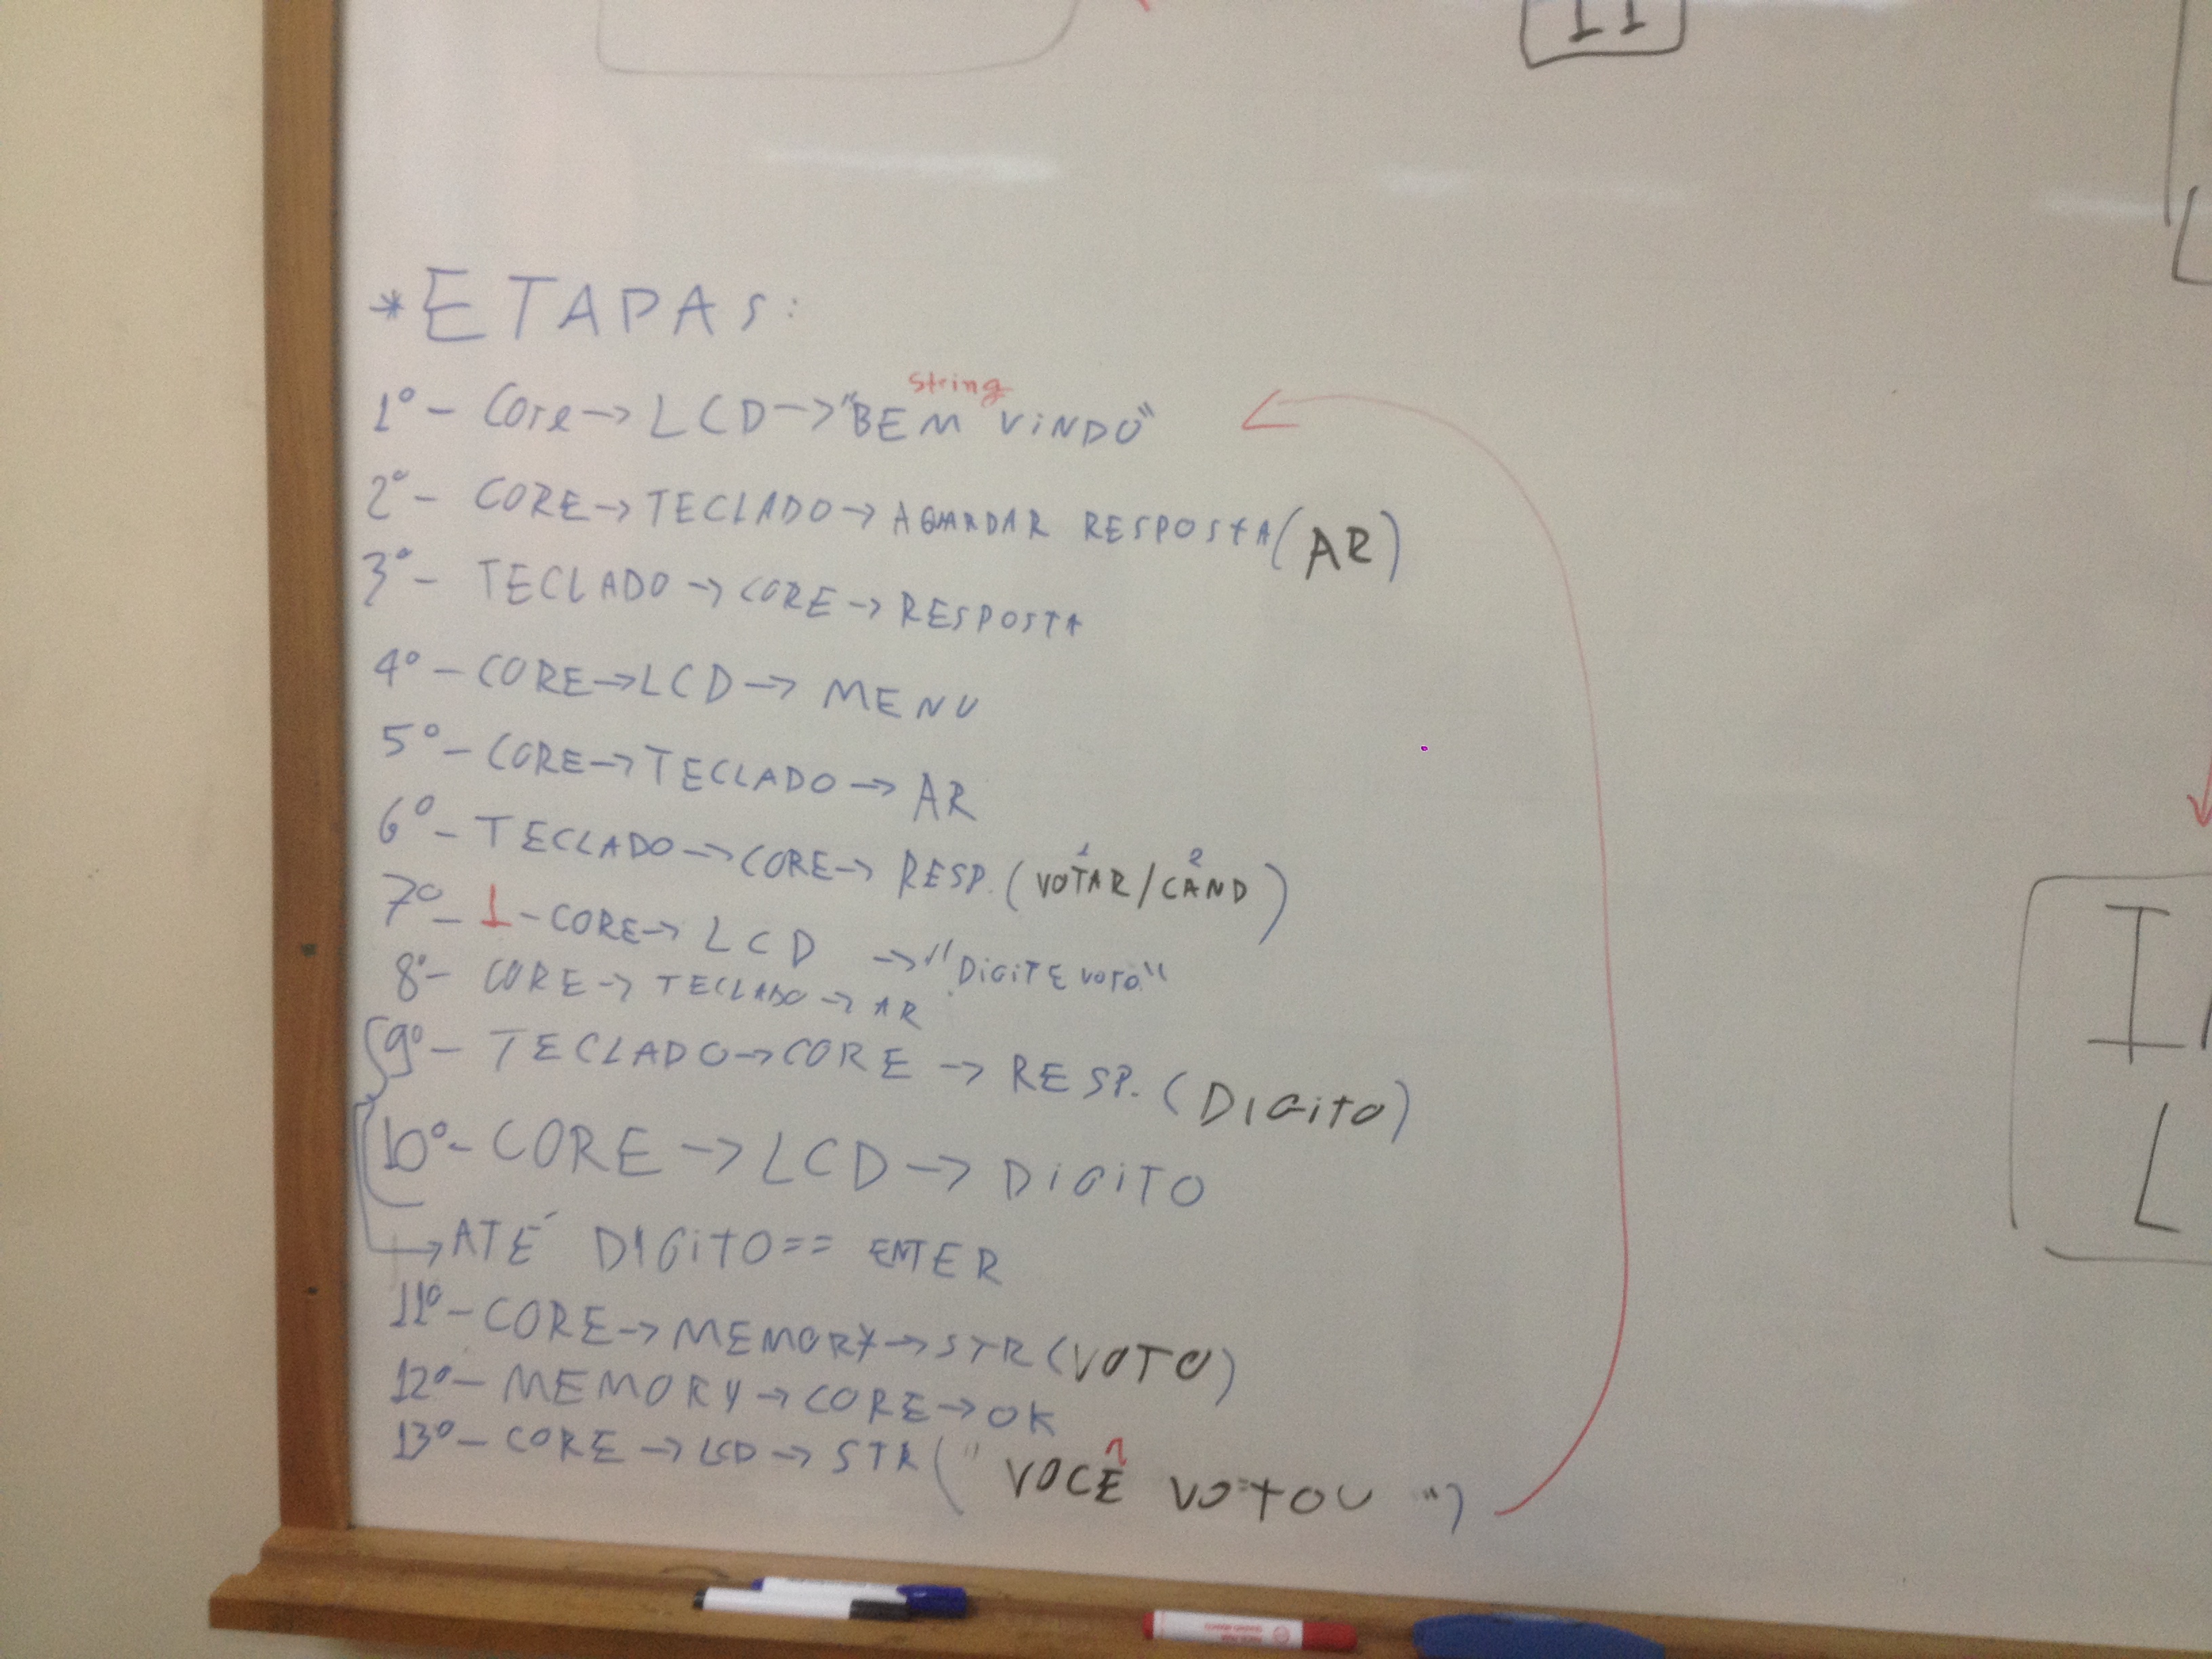 11
* ETAPAS:
string
1º - Core → LCD → "BEM VINDO"
2º - CORE → TECLADO → AGUARDAR RESPOSTA (AR)
3º - TECLADO → CORE → RESPOSTA
4º - CORE → LCD → MENU
5º - CORE → TECLADO → AR
1 2
6º - TECLADO → CORE → RESP. (VOTAR/CAND)
7º - 1 - CORE → LCD → "DIGITE VOTO"
8º - CORE → TECLADO → AR
9º - TECLADO → CORE → RESP. (DIGITO)
10º - CORE → LCD → DIGITO
→ ATÉ DIGITO == ENTER
11º - CORE → MEMORY → STR (VOTO)
12º - MEMORY → CORE → OK
13º - CORE → LCD → STR (" VOCÊ VOTOU ")